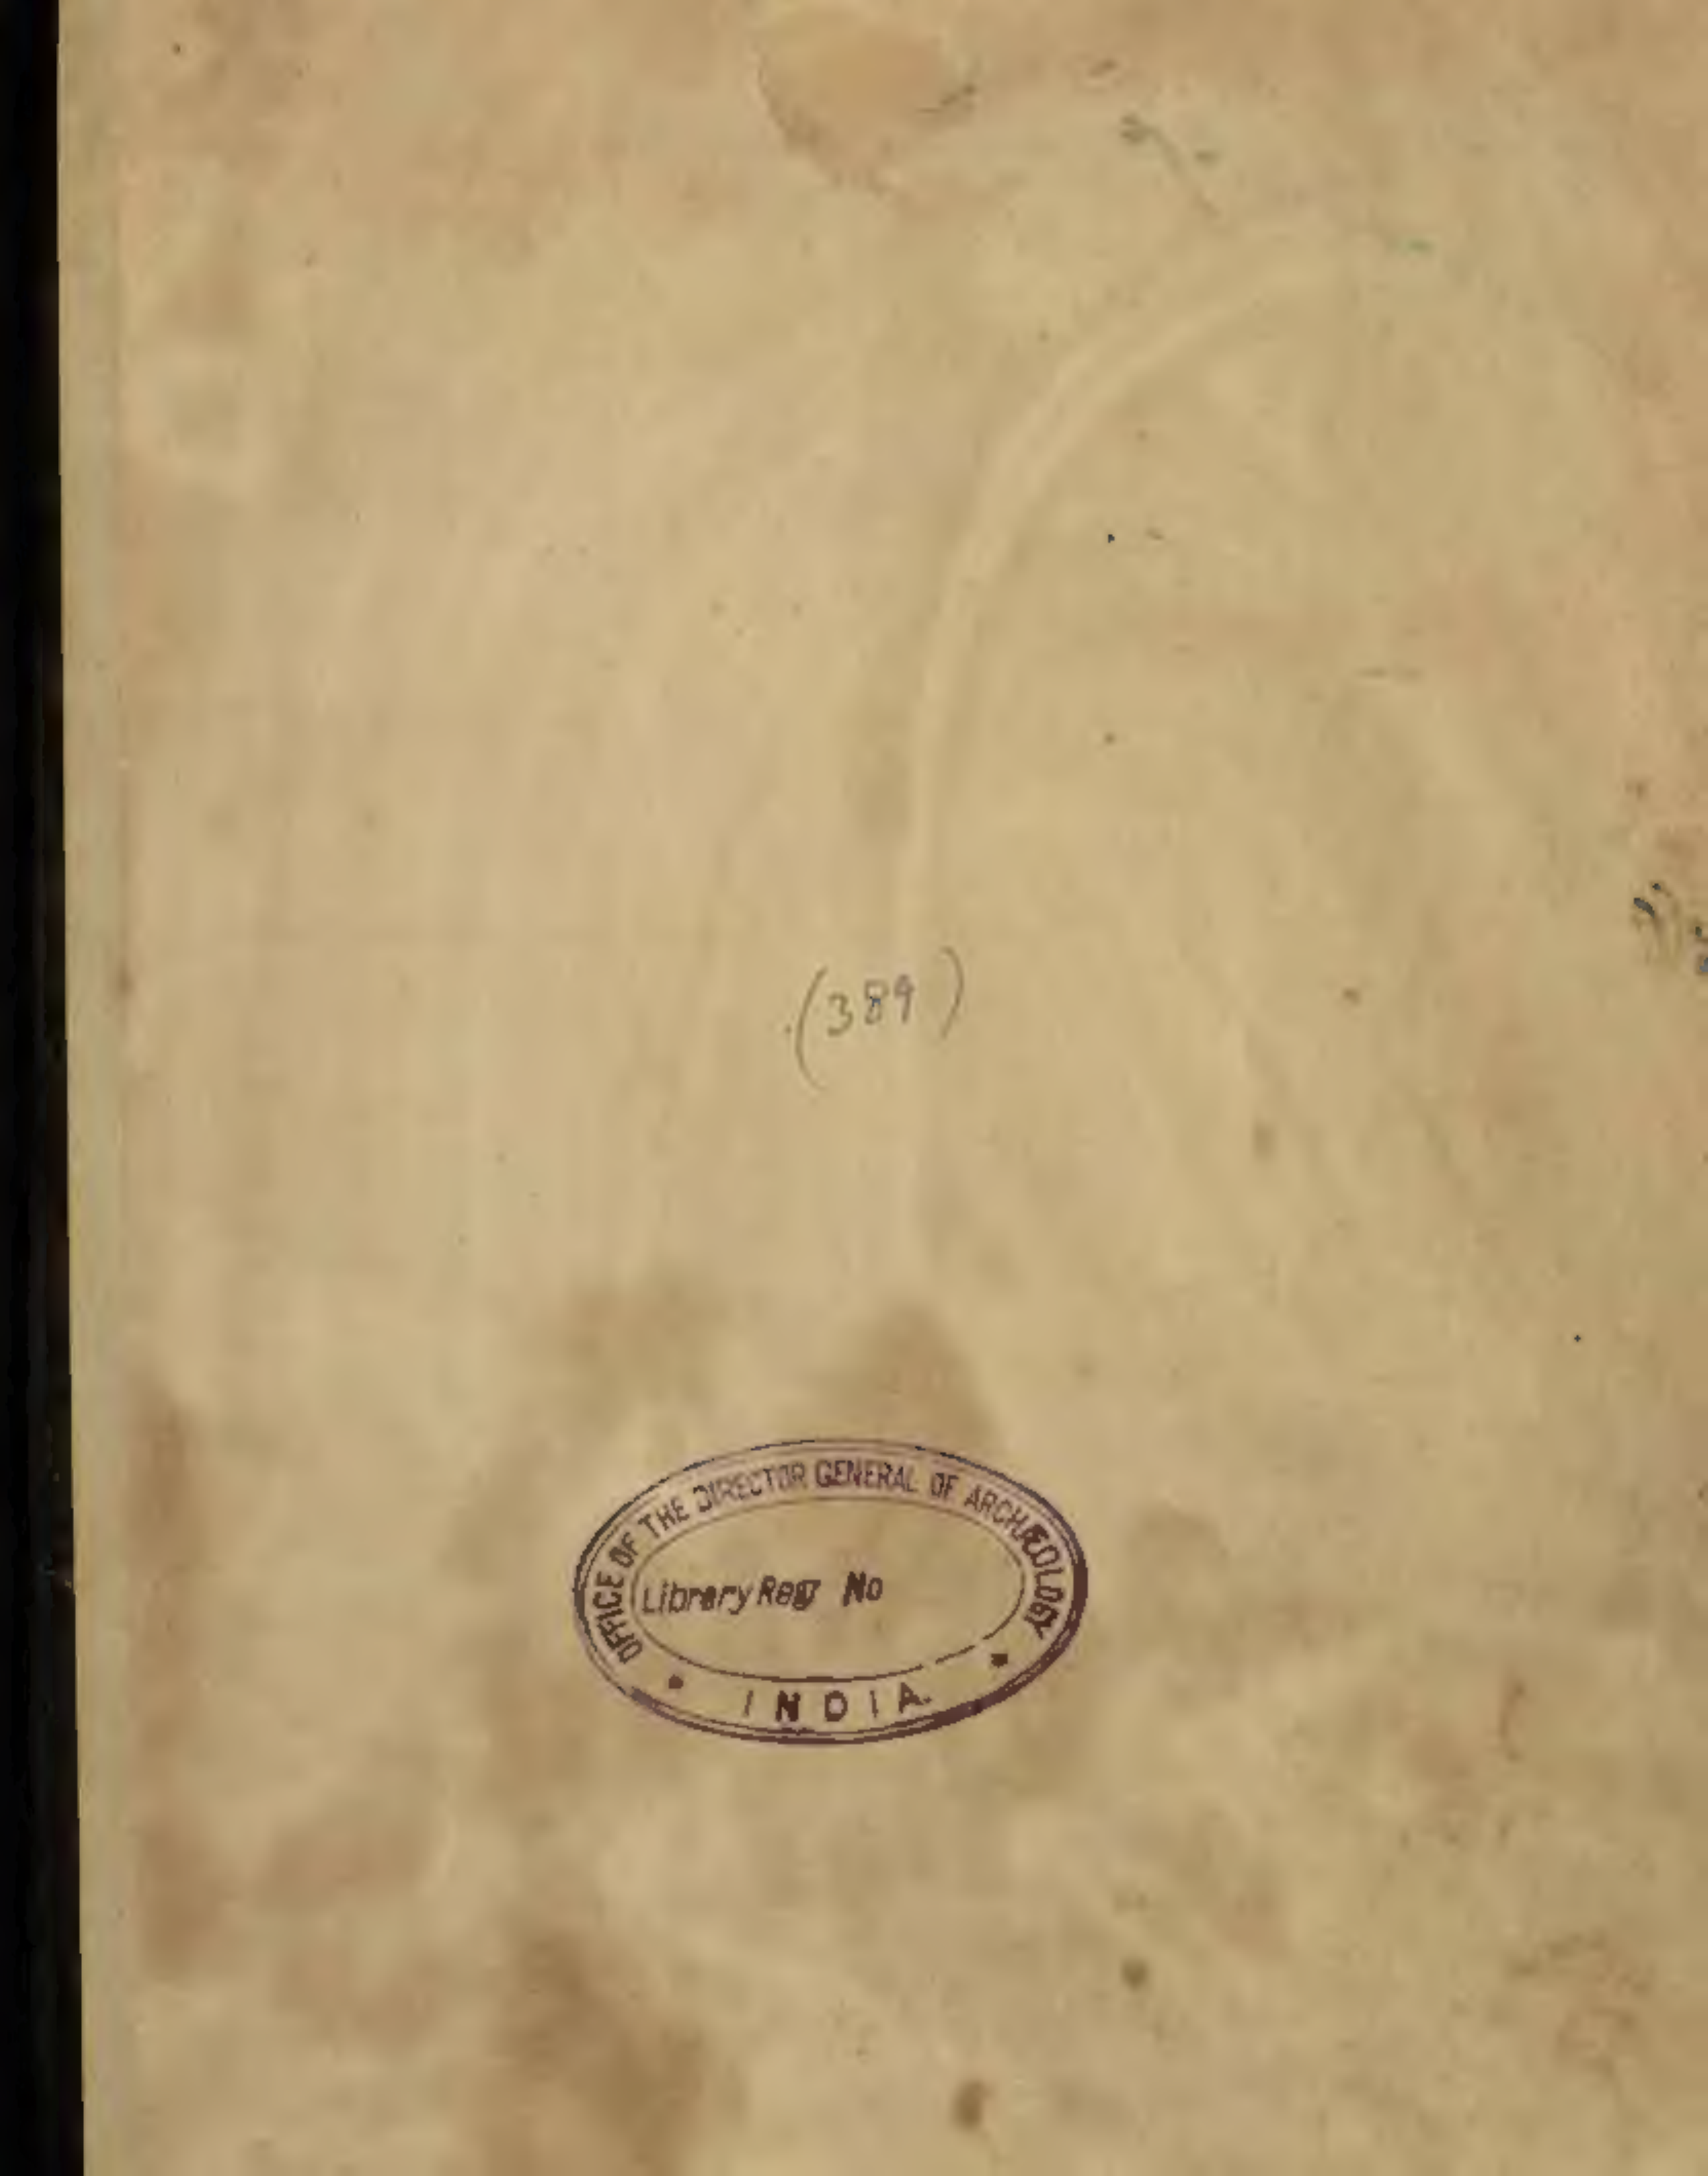 (389)
OFFICE OF THE DIRECTOR GENERAL OF ARCHÆOLOGY
Library Reg No
INDIA.